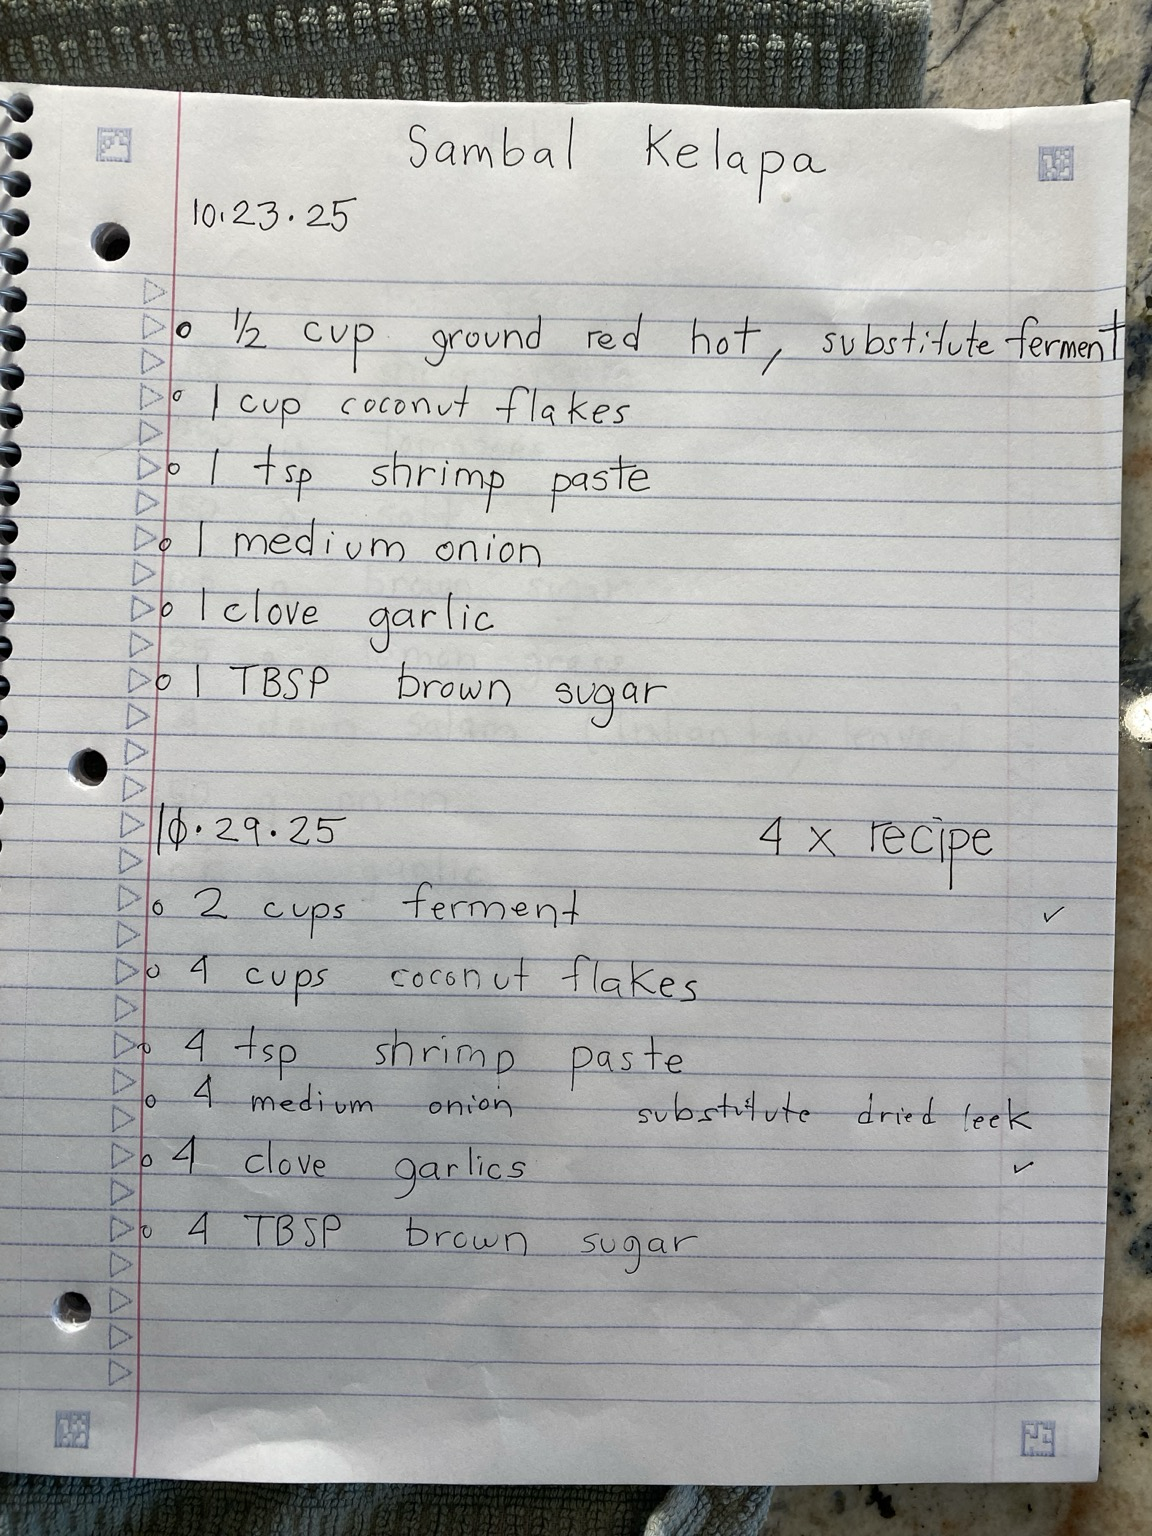 Sambal Kelapa
10.23.25
½ cup ground red hot, substitute ferment
1 cup coconut flakes
1 tsp shrimp paste
1 medium onion
1 clove garlic
1 TBSP brown sugar
10.29.25 4 x recipe
2 cups ferment ✓
4 cups coconut flakes
4 tsp shrimp paste
4 medium onion substitute dried leek
4 clove garlics ✓
4 TBSP brown sugar